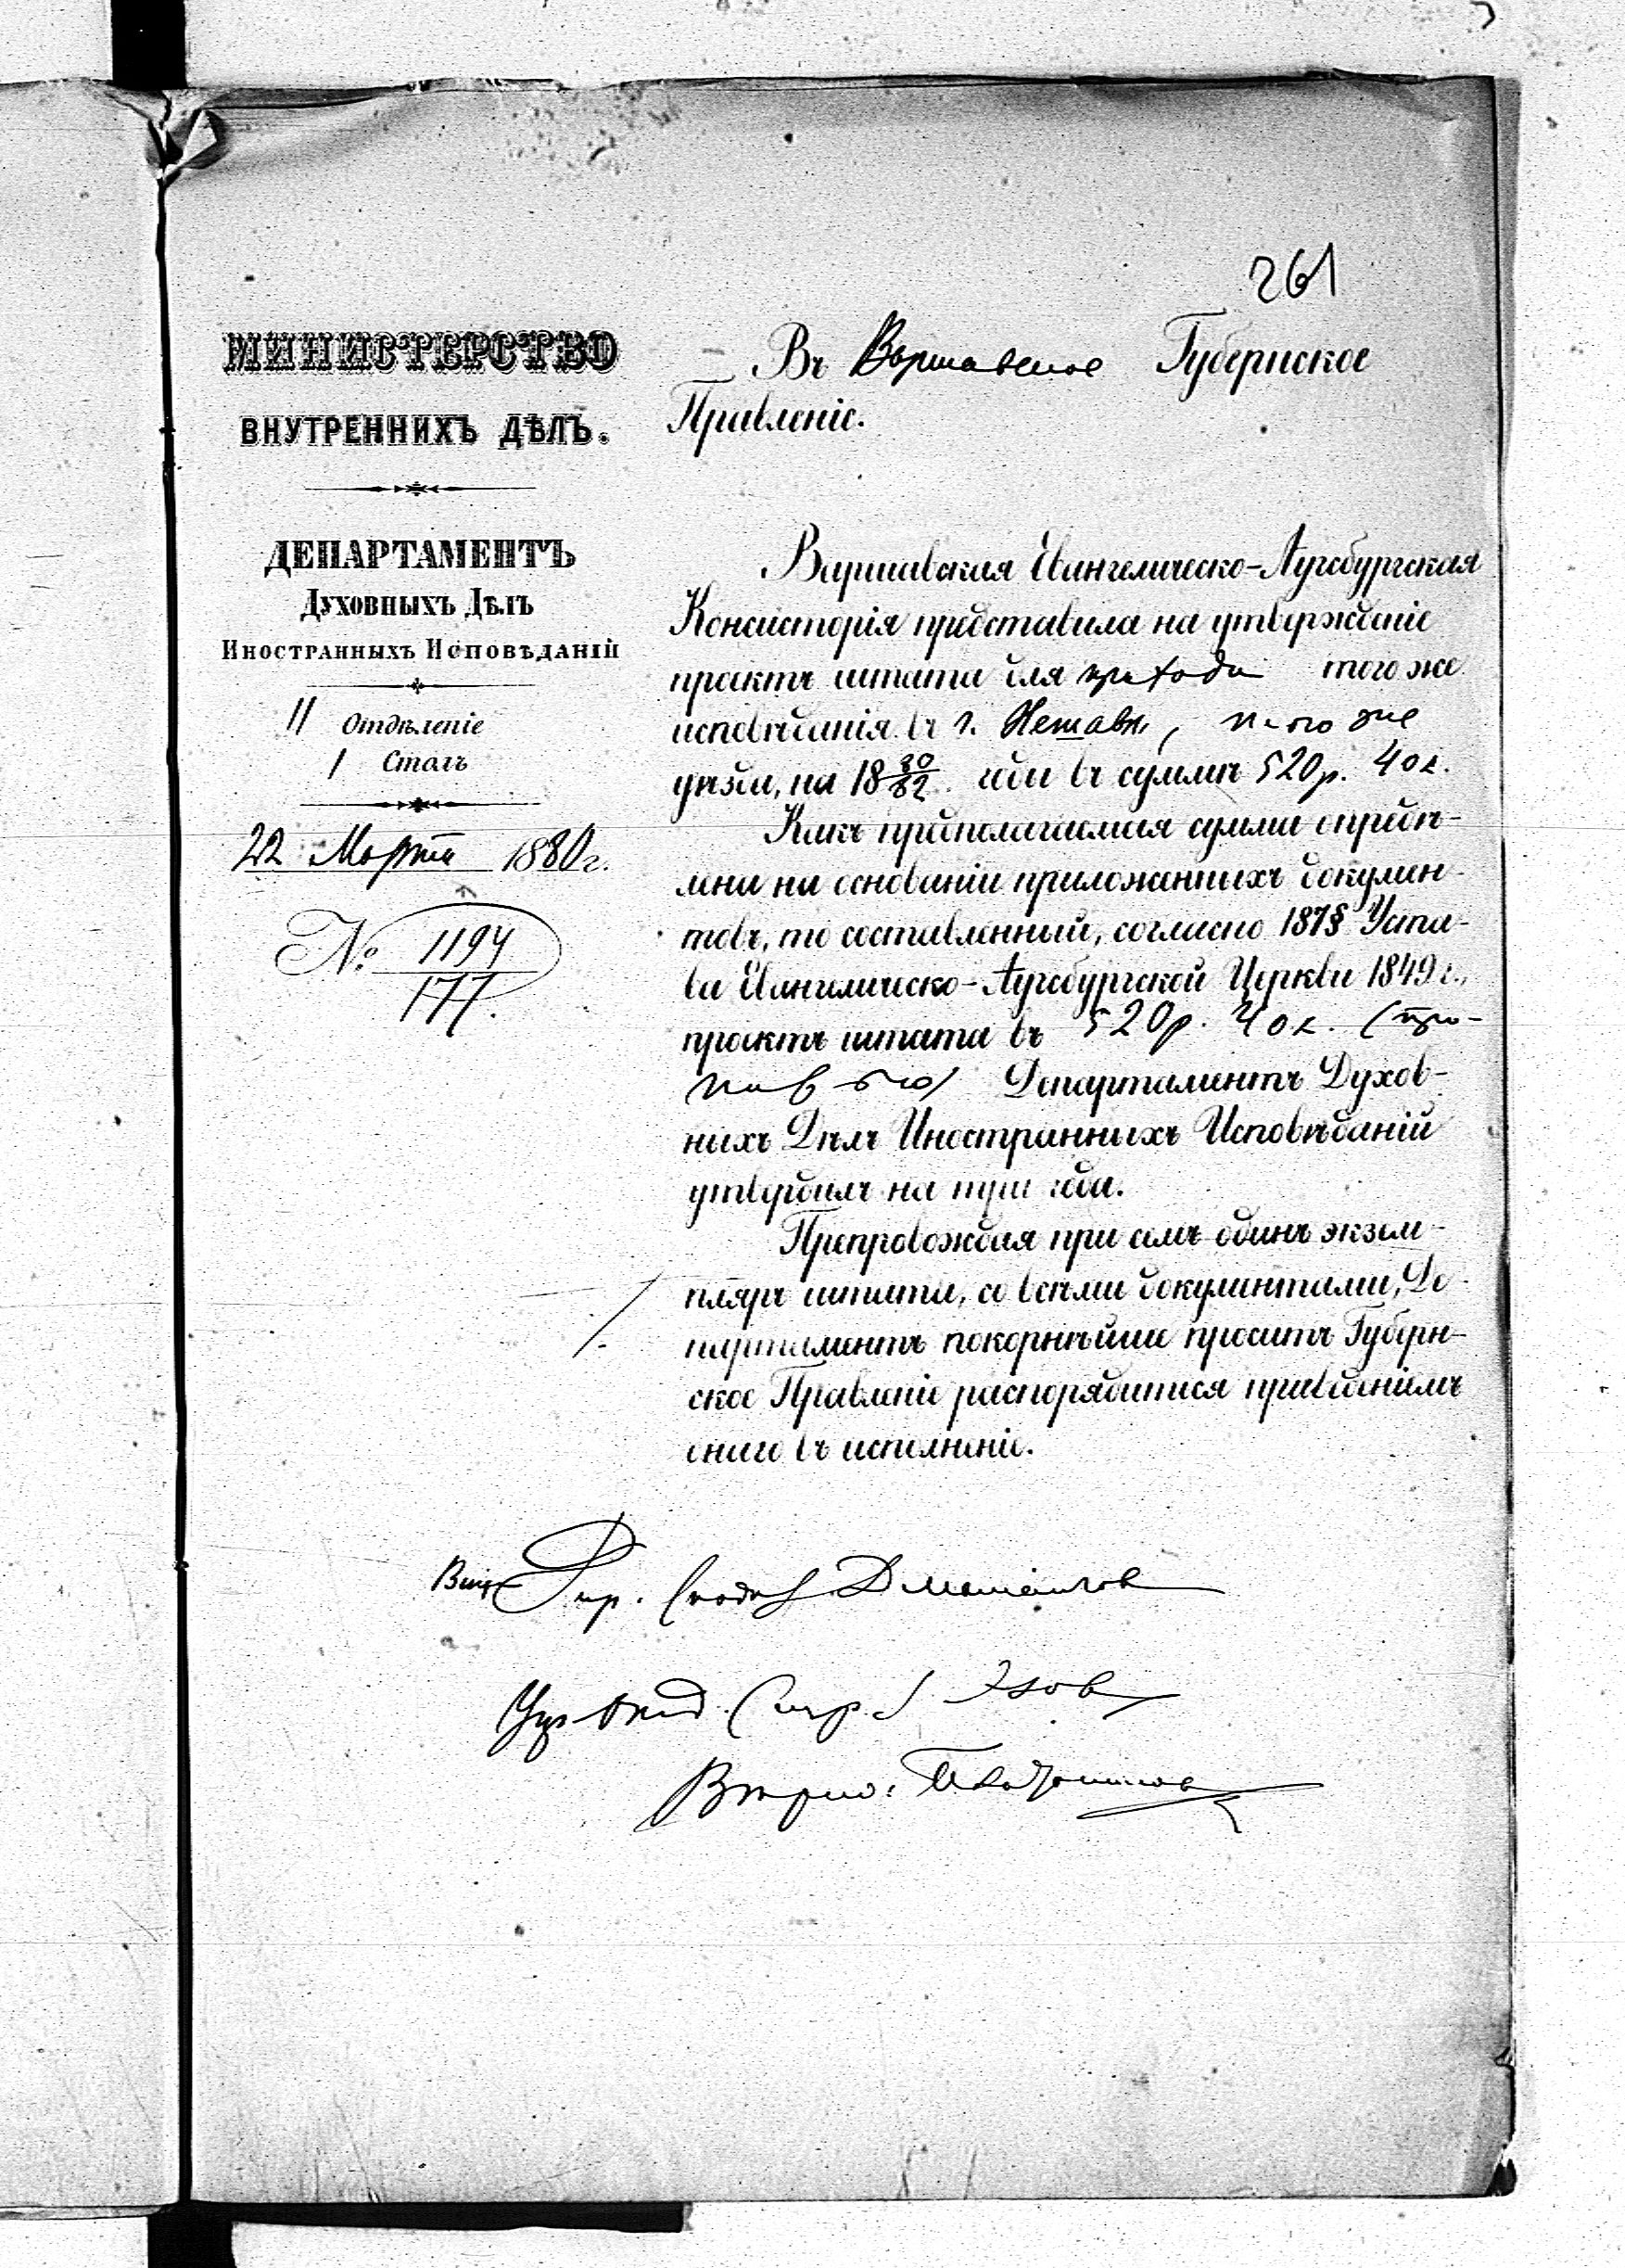 261
МИНИСТЕРСТВО
ВНУТРЕННИХЪ ДѢЛЪ.
ДЕПАРТАМЕНТЪ
ДУХОВНЫХЪ ДѢЛЪ
ИНОСТРАННЫХЪ ИСПОВѢДАНІЙ
II Отдѣленіе
1 Столъ
22 Марта 1880 г.
№ 1194
177.
Въ Варшавское Губернское
Правленіе.
Варшавская Евангелическо-Аугсбургская
Консисторія представила на утвержденіе
проектъ штата для прихода того же
исповѣданія въ г. Нешавѣ, того же
уѣзда, на 18 80/82 годы въ суммѣ 520 р. 40 к.
Какъ предполагаемая сумма опредѣ-
лена на основаніи приложенныхъ докумен-
товъ, то составленный, согласно 187 § Уста-
ва Евангелическо-Аугсбургской Церкви 1849 г.,
проектъ штата въ 520 р. 40 к. (про-
Департаментъ Духов-
ныхъ Дѣлъ Иностранныхъ Исповѣданій
утвердилъ на три года.
Препровождая при семъ одинъ экзем-
пляръ штата, со всѣми документами, Де-
партаментъ покорнѣйше проситъ Губерн-
ское Правленіе распорядиться приведеніемъ
онаго въ исполненіе.
Вице Дир.
Вѣрно: